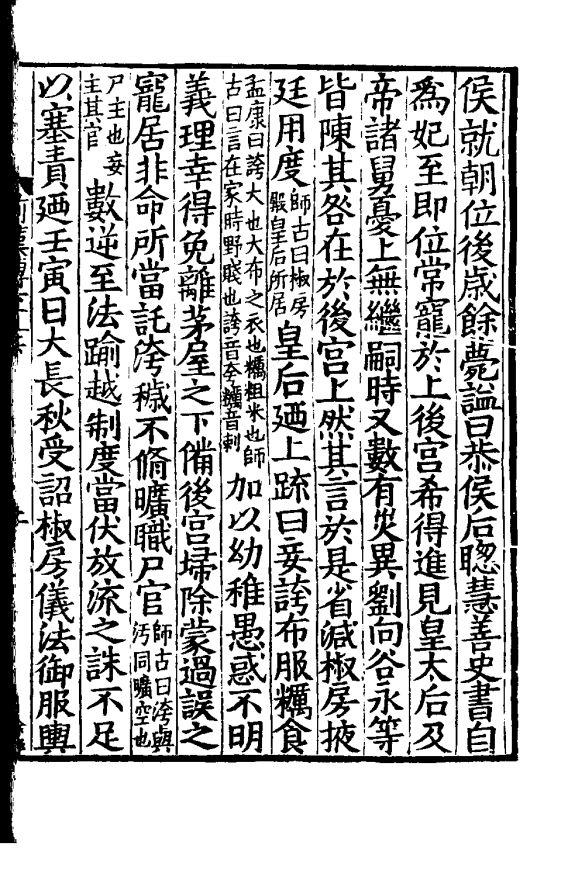 侯就朝位後歲餘薨謚曰恭侯后聰慧善史書自
爲妃至即位常寵於上後宮希得進見皇太后及
帝諸舅憂上無繼嗣時又數有災異劉向谷永等
皆陳其咎在於後宮上然其言於是省減椒房掖
廷用度師古曰椒房殿皇后所居皇后廼上疏曰妾誇布服糲食
孟康曰誇大也大布之衣也糲粗米也師古曰言在家時野賤也誇音夸糲音剌加以幼稚愚惑不明
義理幸得免離茅屋之下備後宮埽除蒙過誤之
寵居非命所當託洿穢不脩曠職尸官師古曰洿與汚同曠空也
尸主也妾主其官數逆至法踰越制度當伏放流之誅不足
以塞責廼壬寅日大長秋受詔椒房儀法御服輿